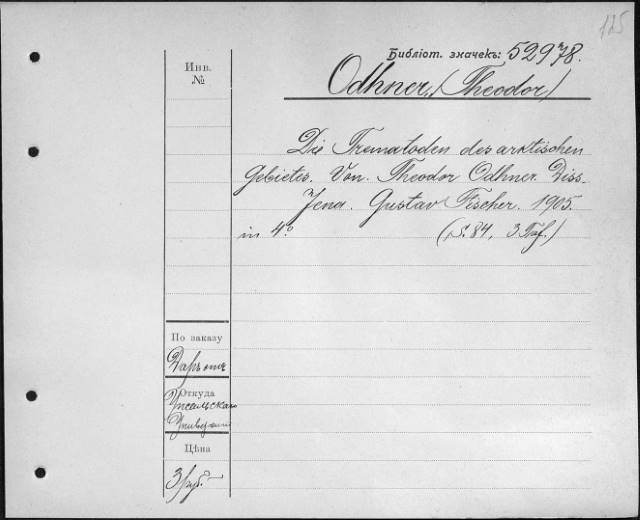 125
Библіот. значекъ: 52978.
Инв.
№
Odhner, (Theodor)
Die Trematoden des arktischen
Gebietes. Von. Theodor Odhner. Diss.
Jena. Gustav Fischer. 1905.
in 4º. (S. 84, 3 Taf.)
По заказу
Даръ отъ
Откуда
Упсальскаго
Университ
Цѣна
3 руб. —